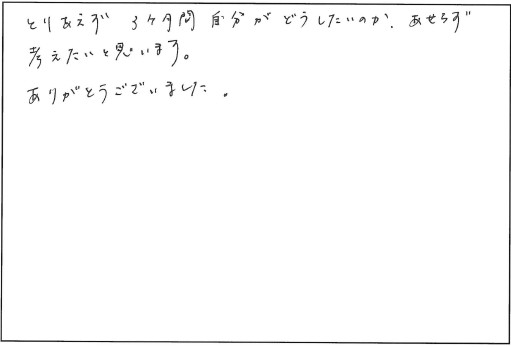 とりあえず 3ケ月間 自分が どうしたいのか、あせらず
考えたいと思います。
ありがとうございました。